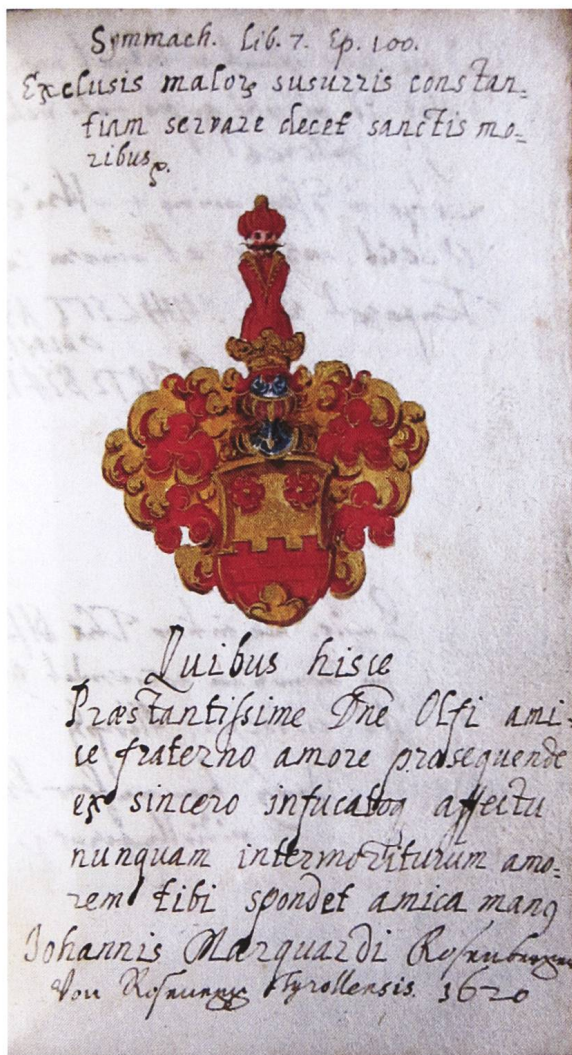 Symmach. Lib. 7. Ep. 100.
Exclusis maloꝝ susurris constan-
tiam servare decet sanctis mo-
ribus
Quibus hisce
Præstantissime Dne Olfi ami-
ce fraterno amore prosequende
ex sincero infucatoq affectu
nunquam intermoriturum amo-
rem tibi spondet amica manꝰ
Johannis Marquardi Rosenberger
Von Tyrollensis. 1620